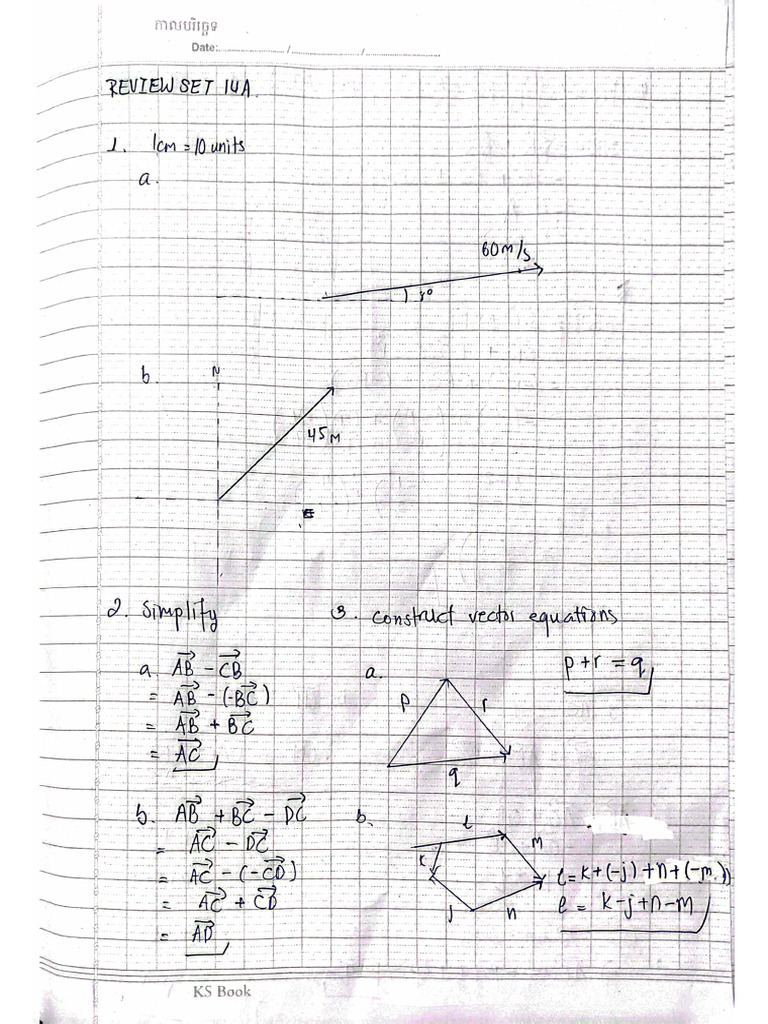 កាលបរិច្ឆេទ
Date:................../................../..................
REVIEW SET 14A.
1. 1cm = 10 units
a.
60m/s
8°
b.
N
45m
E
2. Simplify
a. AB→ - CB→
= AB→ - (-BC→)
= AB→ + BC→
= AC→
b. AB→ + BC→ - DC→
= AC→ - DC→
= AC→ - (-CD→)
= AC→ + CD→
= AD→
3. construct vector equations
a.
p + r = q
p
r
q
b.
l
m
k
j
n
l = k + (-j) + n + (-m))
l = k - j + n - m
KS Book